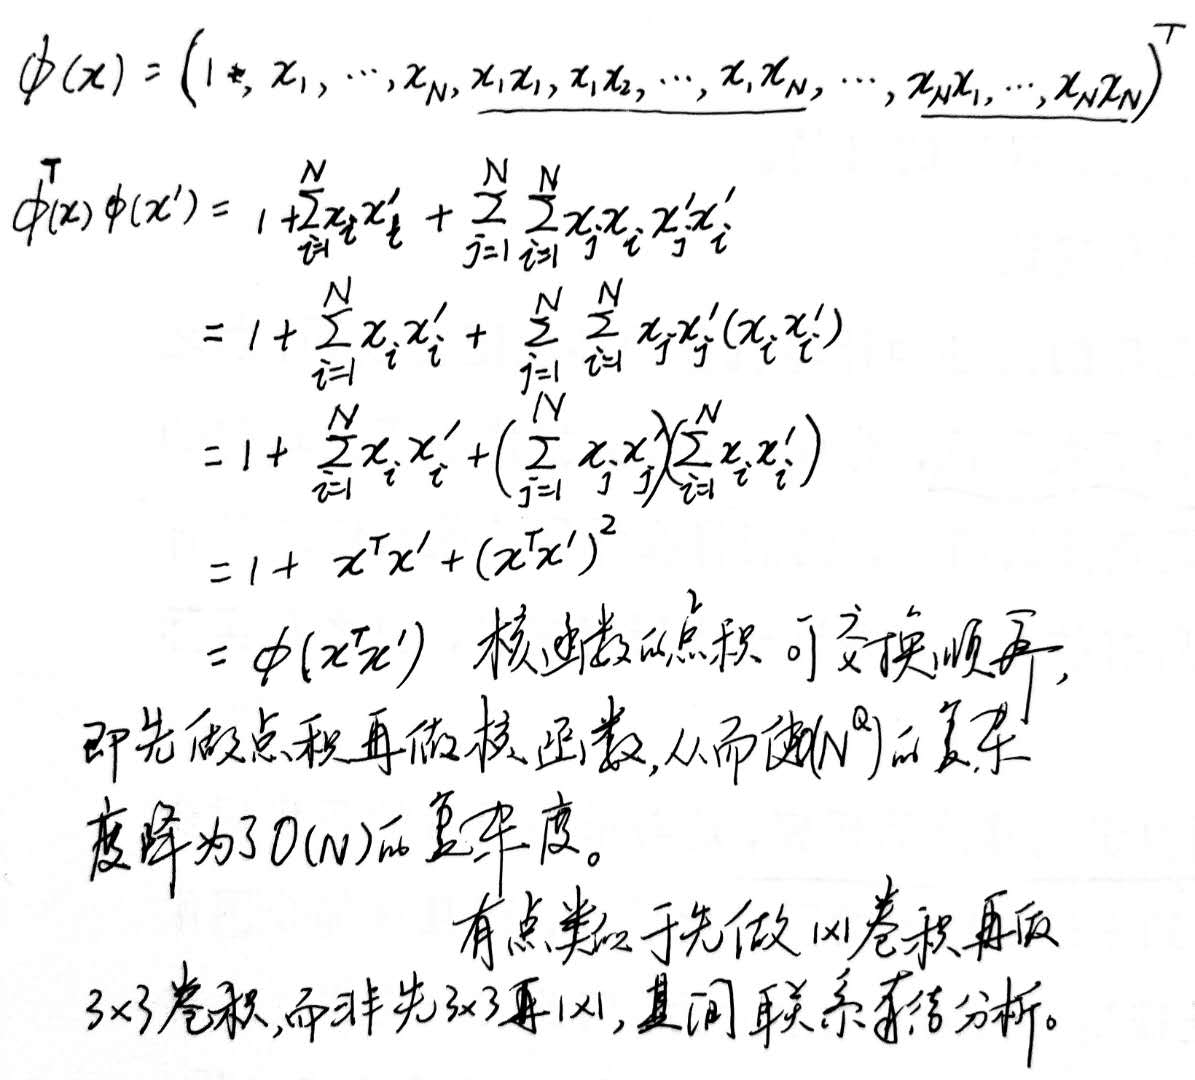 ϕ(x) = (1, x₁, ⋯, x_N, x₁x₁, x₁x₂, ⋯, x₁x_N, ⋯, x_Nx₁, ⋯, x_Nx_N)ᵀ
ϕᵀ(x)ϕ(x') = 1 + ∑_{i=1}^{N} x_i x'_i + ∑_{j=1}^{N} ∑_{i=1}^{N} x_j x_i x'_j x'_i
= 1 + ∑_{i=1}^{N} x_i x'_i + ∑_{j=1}^{N} ∑_{i=1}^{N} x_j x'_j (x_i x'_i)
= 1 + ∑_{i=1}^{N} x_i x'_i + (∑_{j=1}^{N} x_j x'_j)(∑_{i=1}^{N} x_i x'_i)
= 1 + xᵀx' + (xᵀx')²
= ϕ(xᵀx') 核函数的点积可交换顺序,
即先做点积再做核函数,从而使O(N^Q)的复杂
度降为了O(N)的复杂度。
有点类似于先做1×1卷积再做
3×3卷积,而非先3×3再1×1,其间联系有待分析。